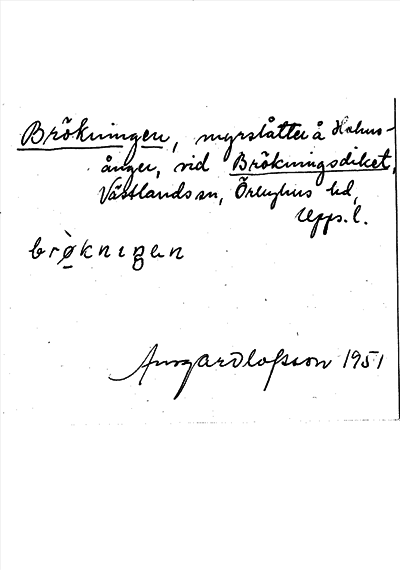 Brökningen, myrslåtter å Hohus-
ånger, vid Brökningsdiket,
Västlands sn, Örbyhus hd,
Upps. l.
brø̀knıŋen
Ansgar Olofsson 1951